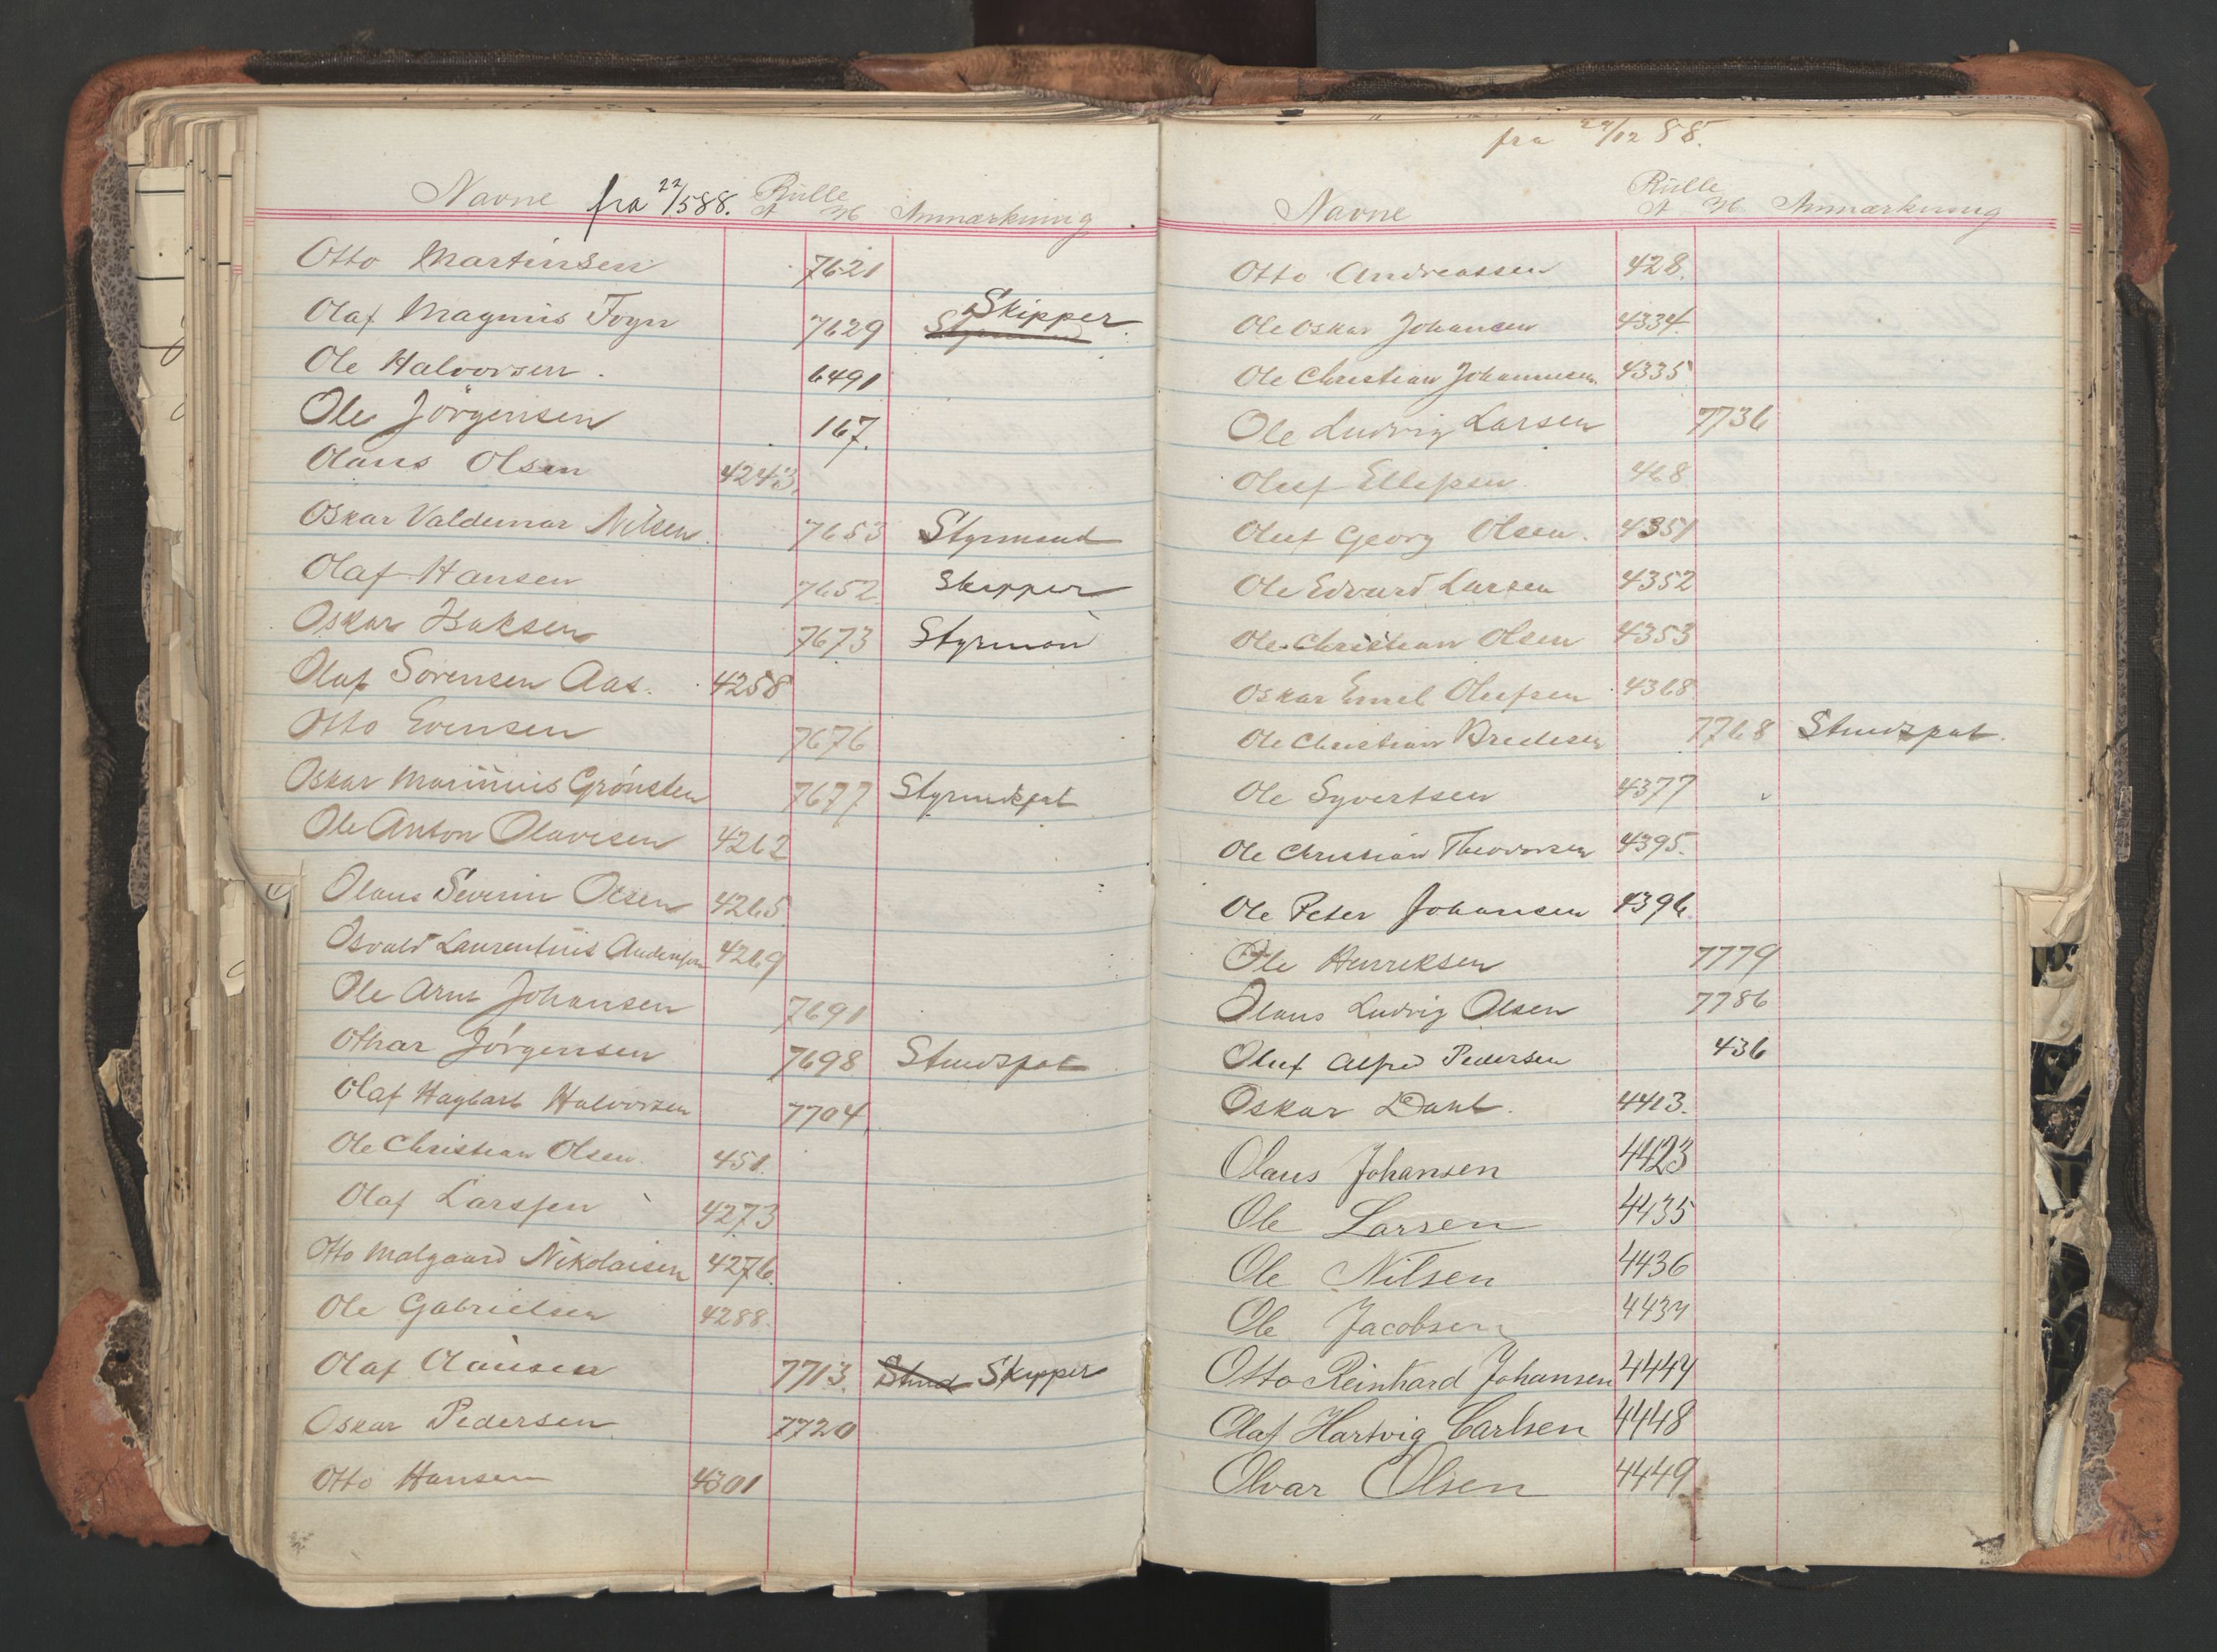 Navne fra 22/5 88. Rulle Anmærkning
A
Otto Martinsen 7621
Olaf Magnus Foyn 7629 Skipper
Ole Halvorsen. 6491
Ole Jörgensen 167.
Olaus Olsen 4243.
Oskar Valdemar Nilsen. 7653 Styrmand
Olaf Hansen 7652 Skipper
Oskar Isaksen 7673 Styrman
Oluf Sörensen Aas. 4258
Otto Evensen 7676
Oskar Marinius Grönsten 7677
Ole Anton Olavesen 4262
Olaus Severin Olsen 4265
Osvald Laurentius Andersen 4269
Ole Arnt Johansen 7691
Othar Jörgensen 7698
Olaf Hagbart Halvorsen 7704
Ole Christian Olsen. 451.
Olaf Larssen 4273
Otto Malgaard Nikolaisen 4276.
Ole Gabrielsen 4288.
Olaf Clausen 7713. Skipper
Oskar Pedersen 7720
Otto Hansen 4301
fra 24/12 88.
Navne Rulle Anmærkning
A
Otto Andreassen 428.
Ole Oskar Johansen 4334.
Ole Christian Johannesen 4335
Ole Ludvig Larsen 7736
Oluf Ellefsen 468
Oluf Georg Olsen. 4351
Ole Edvard Larsen 4352
Ole Christian Olsen 4353
Oskar Emil Olufsen 4368
Ole Christian Bredesen 7768
Ole Syvertsen 4377
Ole Christian Theodorsen 4395.
Ole Peter Johansen 4396.
Ole Henriksen 7779
Olaus Ludvig Olsen 7786
Oluf Alfred Pedersen 436
Oskar Dahl. 4413.
Olaus Johansen 4423
Ole Larsen 4435
Ole Nilsen 4436
Ole Jacobsen 4437
Otto Reinhard Johansen 4447
Olaf Hartvig Carlsen 4448
Olvar Olsen 4449